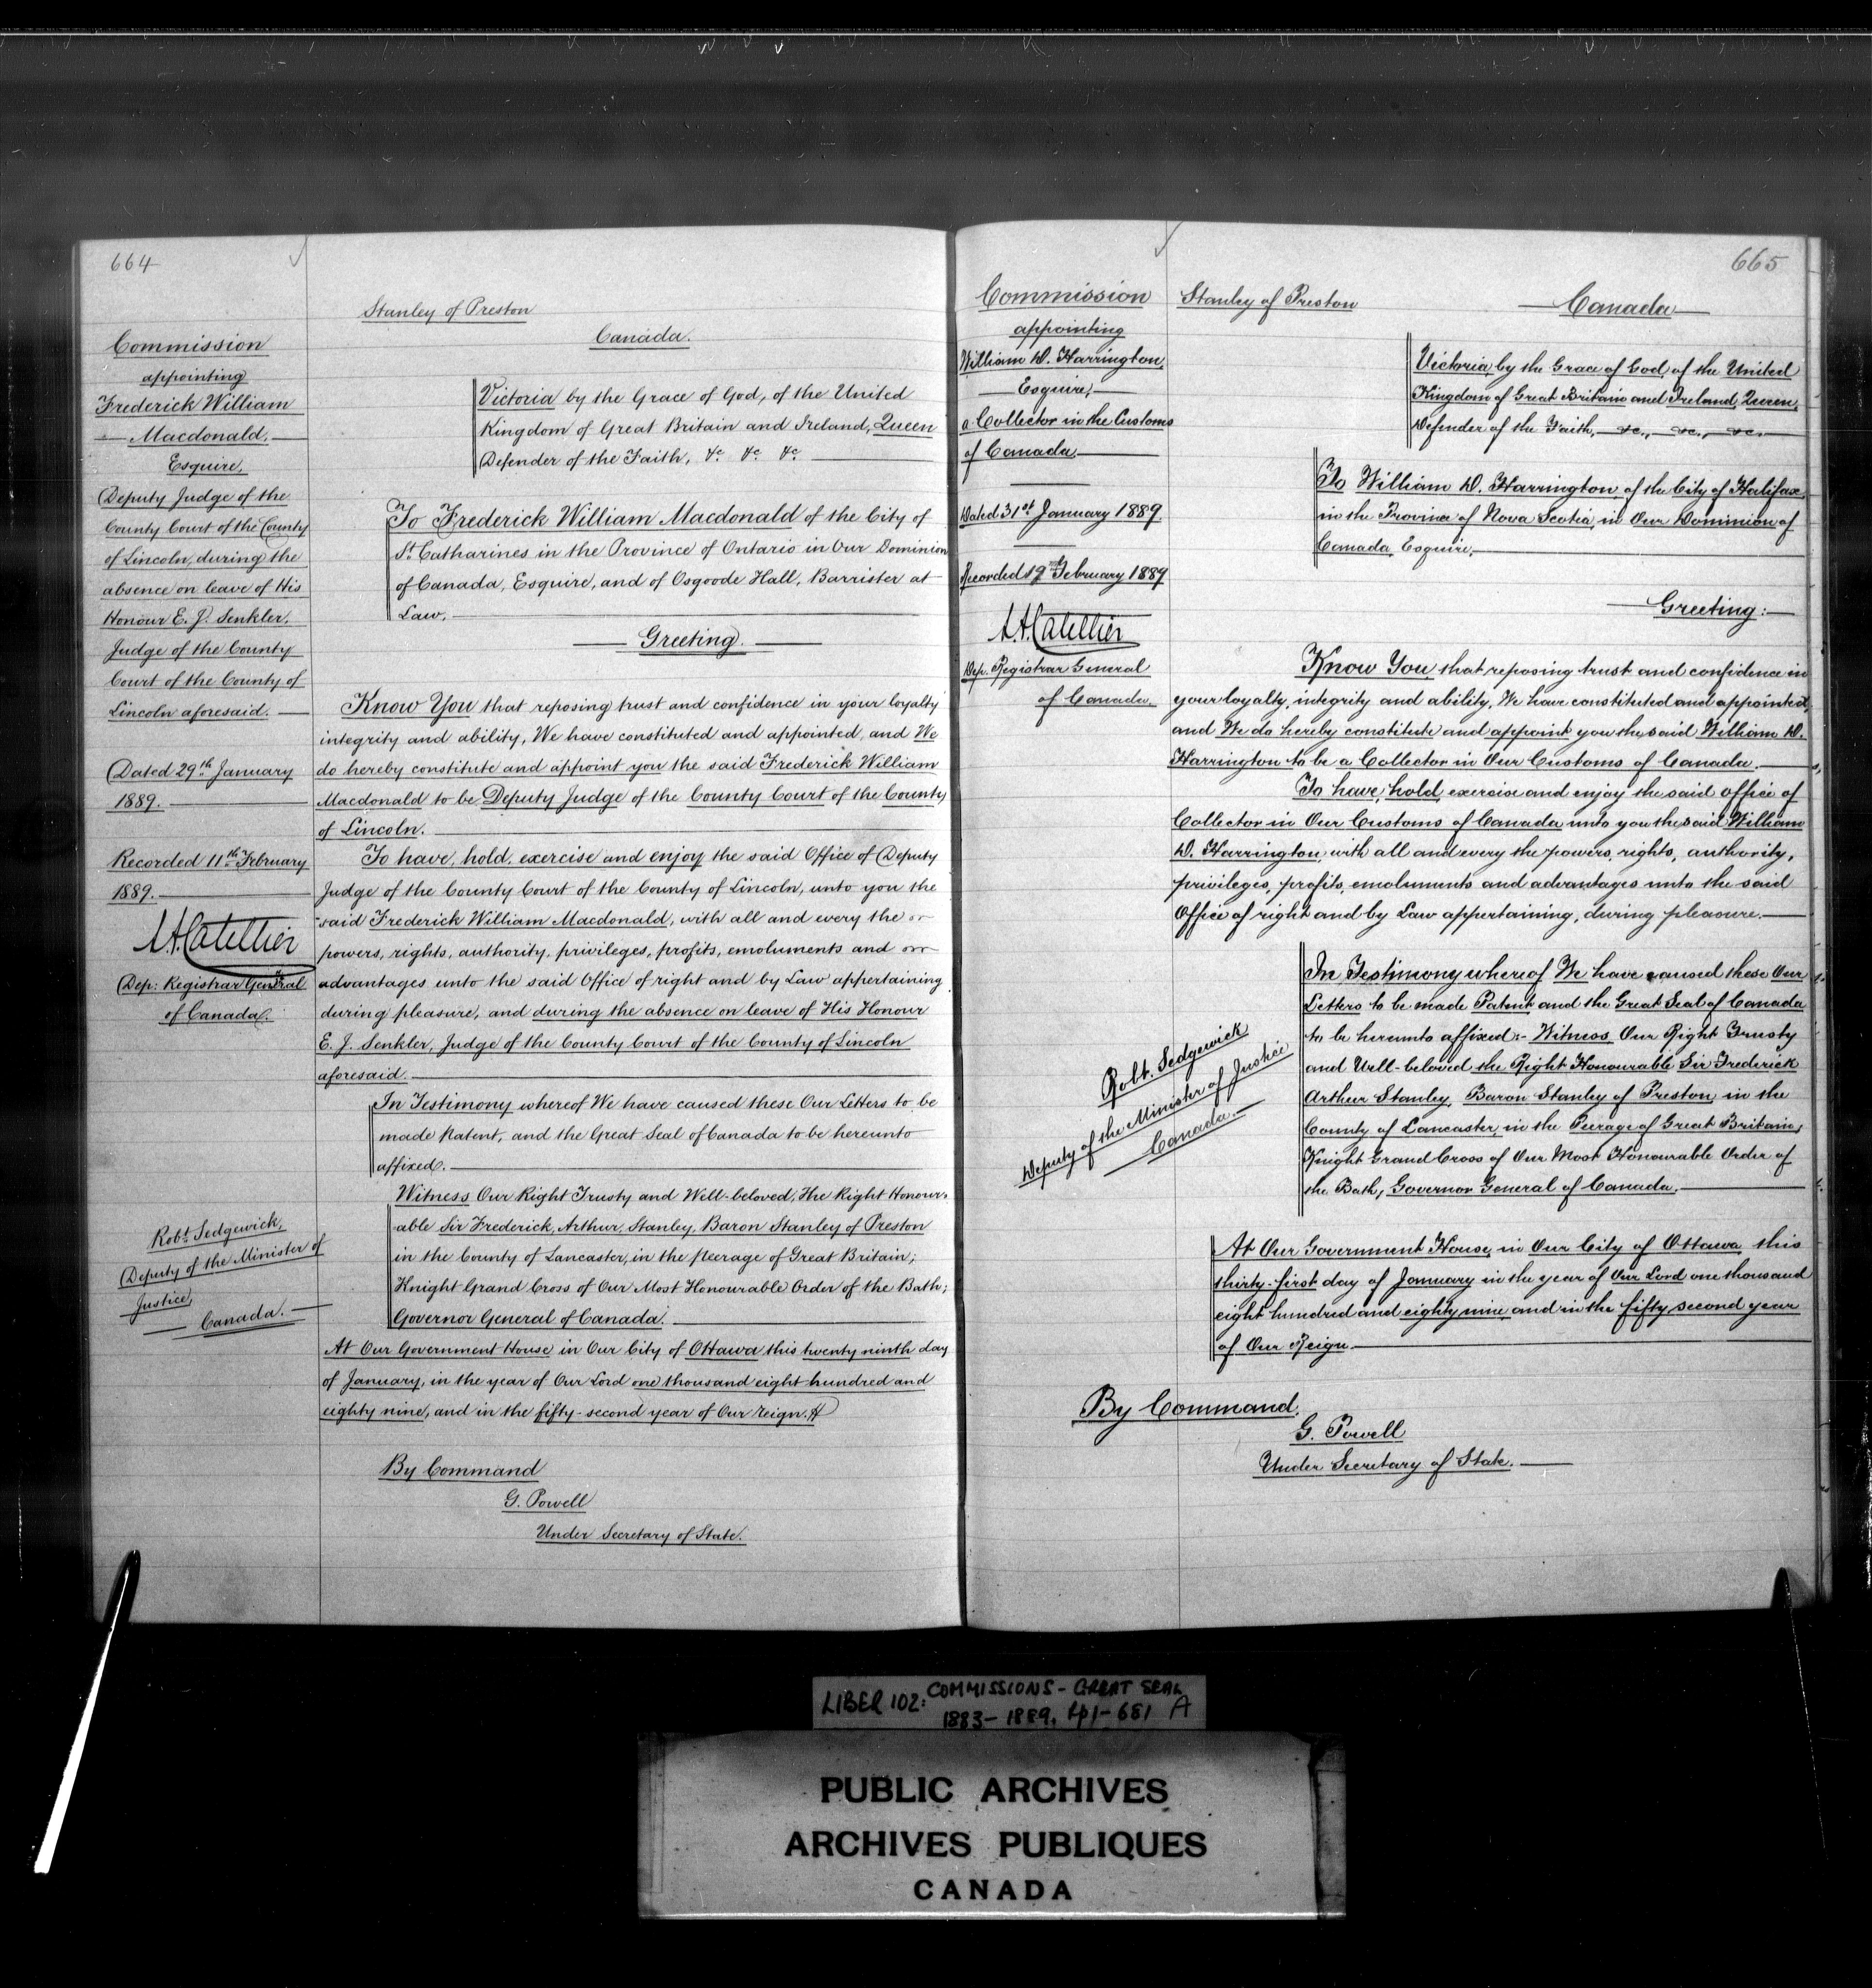 664
Commission
appointing
Frederick William
Macdonald,
Esquire,
Deputy Judge of the
County Court of the County
of Lincoln, during the
absence on leave of His
Honour E. J. Senkler,
Judge of the County
Court of the County of
Lincoln aforesaid.
Dated 29th January
1889.
Recorded 11th February
1889.
L.A. Catellier
Dep: Registrar General
of Canada.
Robt. Sedgewick,
Deputy of the Minister of
Justice,
Canada.
Stanley of Preston
Canada.
Victoria by the Grace of God, of the United
Kingdom of Great Britain and Ireland, Queen
Defender of the Faith, &c &c &c
To Frederick William Macdonald of the City of
St. Catharines in the Province of Ontario in Our Dominion
of Canada, Esquire, and of Osgoode Hall, Barrister at
Law,
Greeting.
Know You that reposing trust and confidence in your loyalty
integrity and ability, We have constituted and appointed, and We
do hereby constitute and appoint you the said Frederick William
Macdonald to be Deputy Judge of the County Court of the County
of Lincoln.
To have, hold, exercise and enjoy the said Office of Deputy
Judge of the County Court of the County of Lincoln, unto you the
said Frederick William Macdonald, with all and every the
powers, rights, authority, privileges, profits, emoluments and
advantages unto the said Office of right and by Law appertaining
during pleasure, and during the absence on leave of His Honour
E. J. Senkler, Judge of the County Court of the County of Lincoln
aforesaid.
In Testimony whereof We have caused these Our Letters to be
made Patent, and the Great Seal of Canada to be hereunto
affixed.
Witness Our Right Trusty and Well-beloved, the Right Honour-
able Sir Frederick, Arthur, Stanley, Baron Stanley of Preston
in the County of Lancaster, in the peerage of Great Britain;
Knight Grand Cross of Our Most Honourable Order of the Bath;
Governor General of Canada.
At Our Government House in Our City of Ottawa this twenty ninth day
of January, in the year of Our Lord one thousand eight hundred and
eighty nine, and in the fifty-second year of Our reign.
By Command
G. Powell
Under Secretary of State.
665
Commission
appointing
William D. Harrington,
Esquire,
a Collector in the Customs
of Canada.
Dated 31st January 1889.
Recorded 19th February 1889
L.A. Catellier
Dep. Registrar General
of Canada.
Robt. Sedgewick
Deputy of the Minister of Justice
Canada.
Stanley of Preston
Canada
Victoria, by the Grace of God, of the United
Kingdom of Great Britain and Ireland, Queen,
Defender of the Faith, &c., &c., &c.
To William D. Harrington, of the City of Halifax,
in the Province of Nova Scotia, in Our Dominion of
Canada, Esquire,
Greeting:
Know You that reposing trust and confidence in
your loyalty, integrity and ability, We have constituted and appointed,
and We do hereby constitute and appoint you the said William D.
Harrington to be a Collector in Our Customs of Canada.
To have, hold, exercise and enjoy the said office of
Collector in Our Customs of Canada unto you the said William
D. Harrington, with all and every the powers, rights, authority,
privileges, profits, emoluments and advantages unto the said
Office of right and by Law appertaining, during pleasure.
In Testimony whereof We have caused these Our
Letters to be made Patent, and the Great Seal of Canada
to be hereunto affixed:- Witness, Our Right Trusty
and Well-beloved the Right Honourable Sir Frederick
Arthur Stanley, Baron Stanley of Preston in the
County of Lancaster, in the Peerage of Great Britain,
Knight Grand Cross of Our Most Honourable Order of
the Bath, Governor General of Canada.
At Our Government House, in Our City of Ottawa this
thirty-first day of January in the year of Our Lord one thousand
eight hundred and eighty nine and in the fifty second year
of Our Reign
By Command.
G. Powell
Under Secretary of State.
LIBER 102: COMMISSIONS - GREAT SEAL
1883-1889, pp1-681 A
PUBLIC ARCHIVES
ARCHIVES PUBLIQUES
CANADA